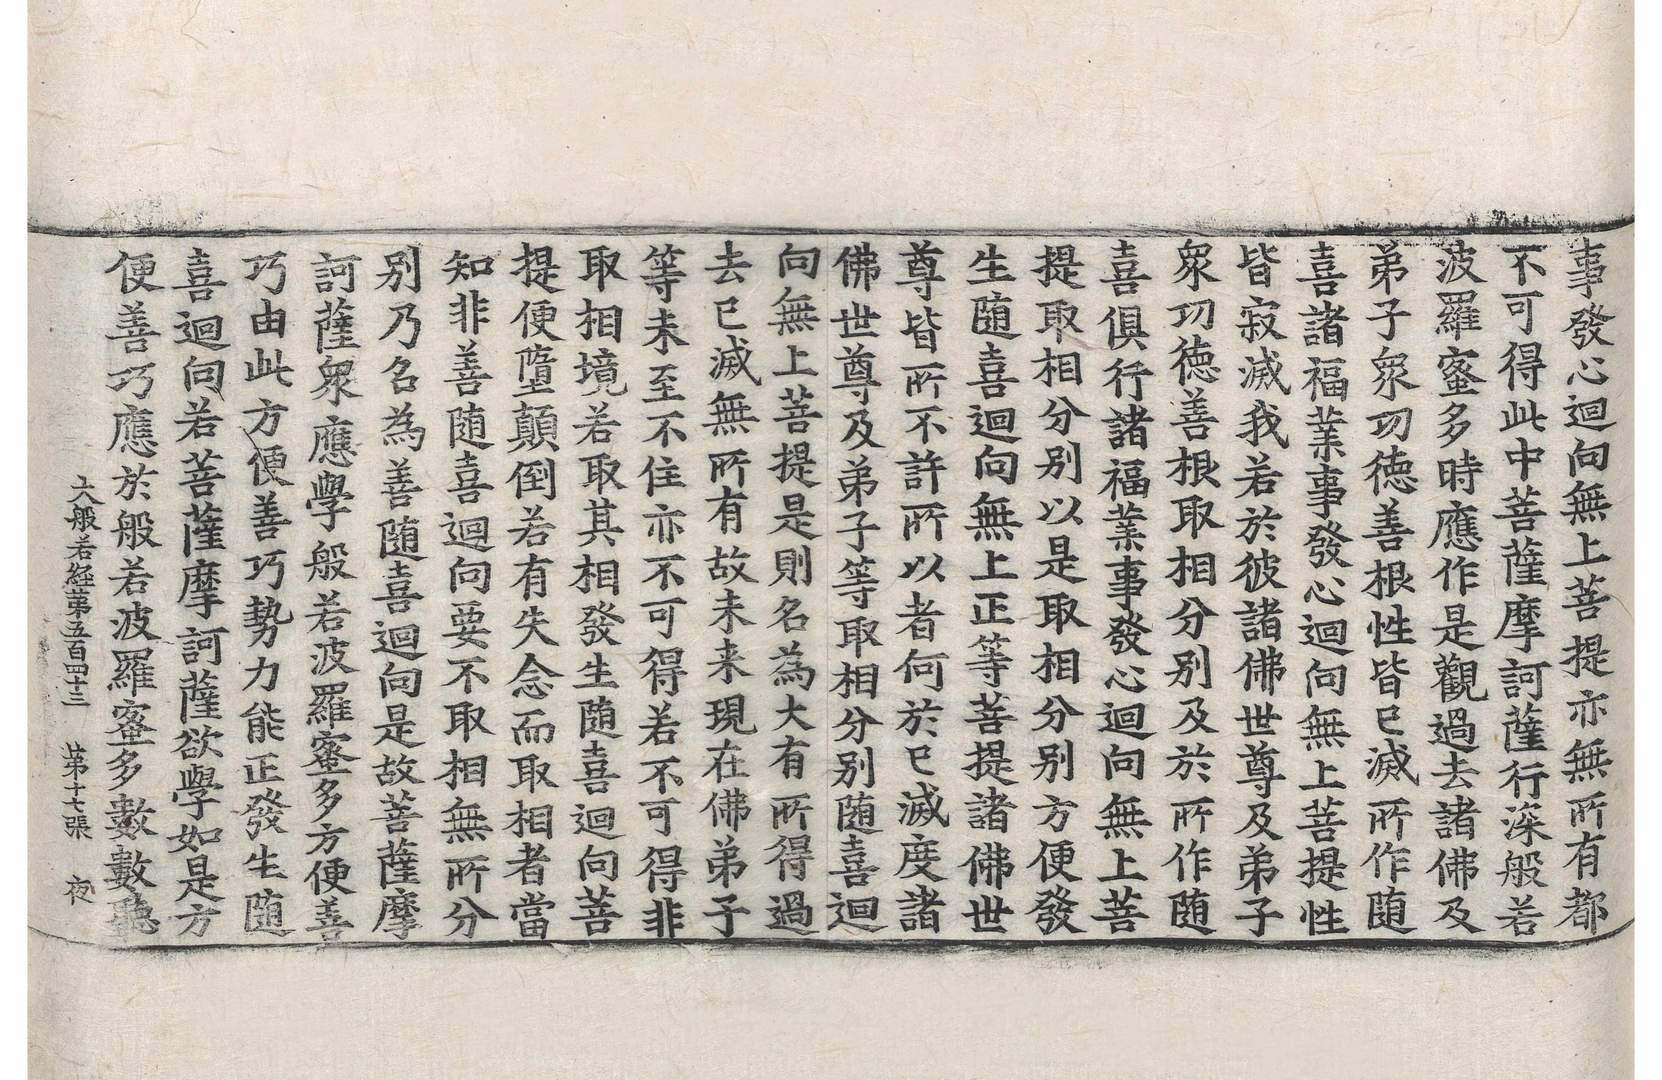 事發心迴向無上菩提亦無所有都
不可得此中菩薩摩訶薩行深般若
波羅蜜多時應作是觀過去諸佛及
弟子衆功德善根性皆已滅所作随
喜諸福業事發心迴向無上菩提性
皆寂滅我若於彼諸佛世尊及弟子
衆功德善根取相分别及於所作随
喜俱行諸福業事發心迴向無上菩
提取相分别以是取相分别方便發
生随喜迴向無上正等菩提諸佛世
尊皆所不許所以者何於已滅度諸
佛世尊及弟子等取相分别随喜迴
向無上菩提是則名為大有所得過
去已滅無所有故未来現在佛弟子
等未至不住亦不可得若不可得非
取相境若取其相發生随喜迴向菩
提便墮顛倒若有失念而取相者當
知非善随喜迴向要不取相無所分
别乃名為善随喜迴向是故菩薩摩
訶薩衆應學般若波羅蜜多方便善
巧由此方便善巧勢力能正發生随
喜迴向若菩薩摩訶薩欲學如是方
便善巧應於般若波羅蜜多數數聽
大般若経第五百四十三 第十七張 夜